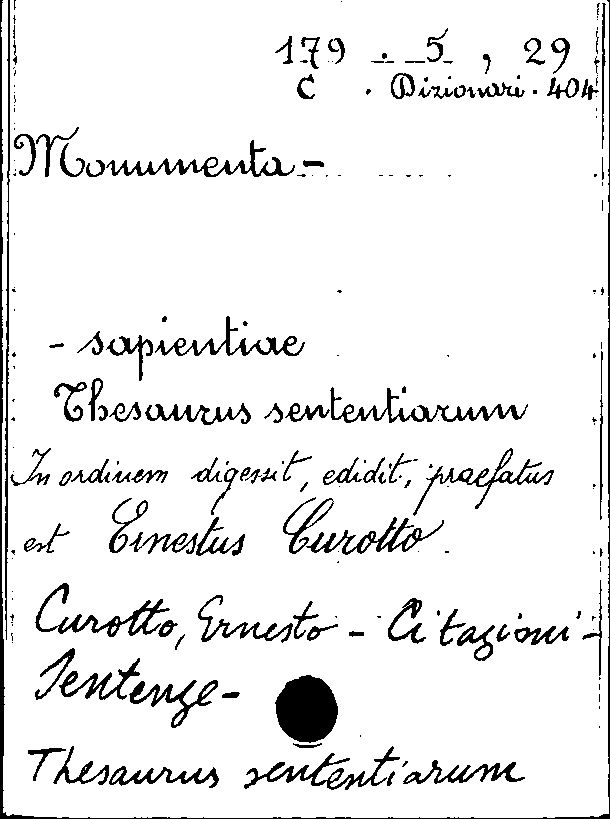 179 . 5 , 29
C . Dizionari . 404
Monumenta -
- sapientiae
Thesaurus sententiarum
In ordinem digessit, edidit, praefatus
est Ernestus Curotto
Curotto, Ernesto - Citazioni -
Sentenze -
Thesaurus sententiarum